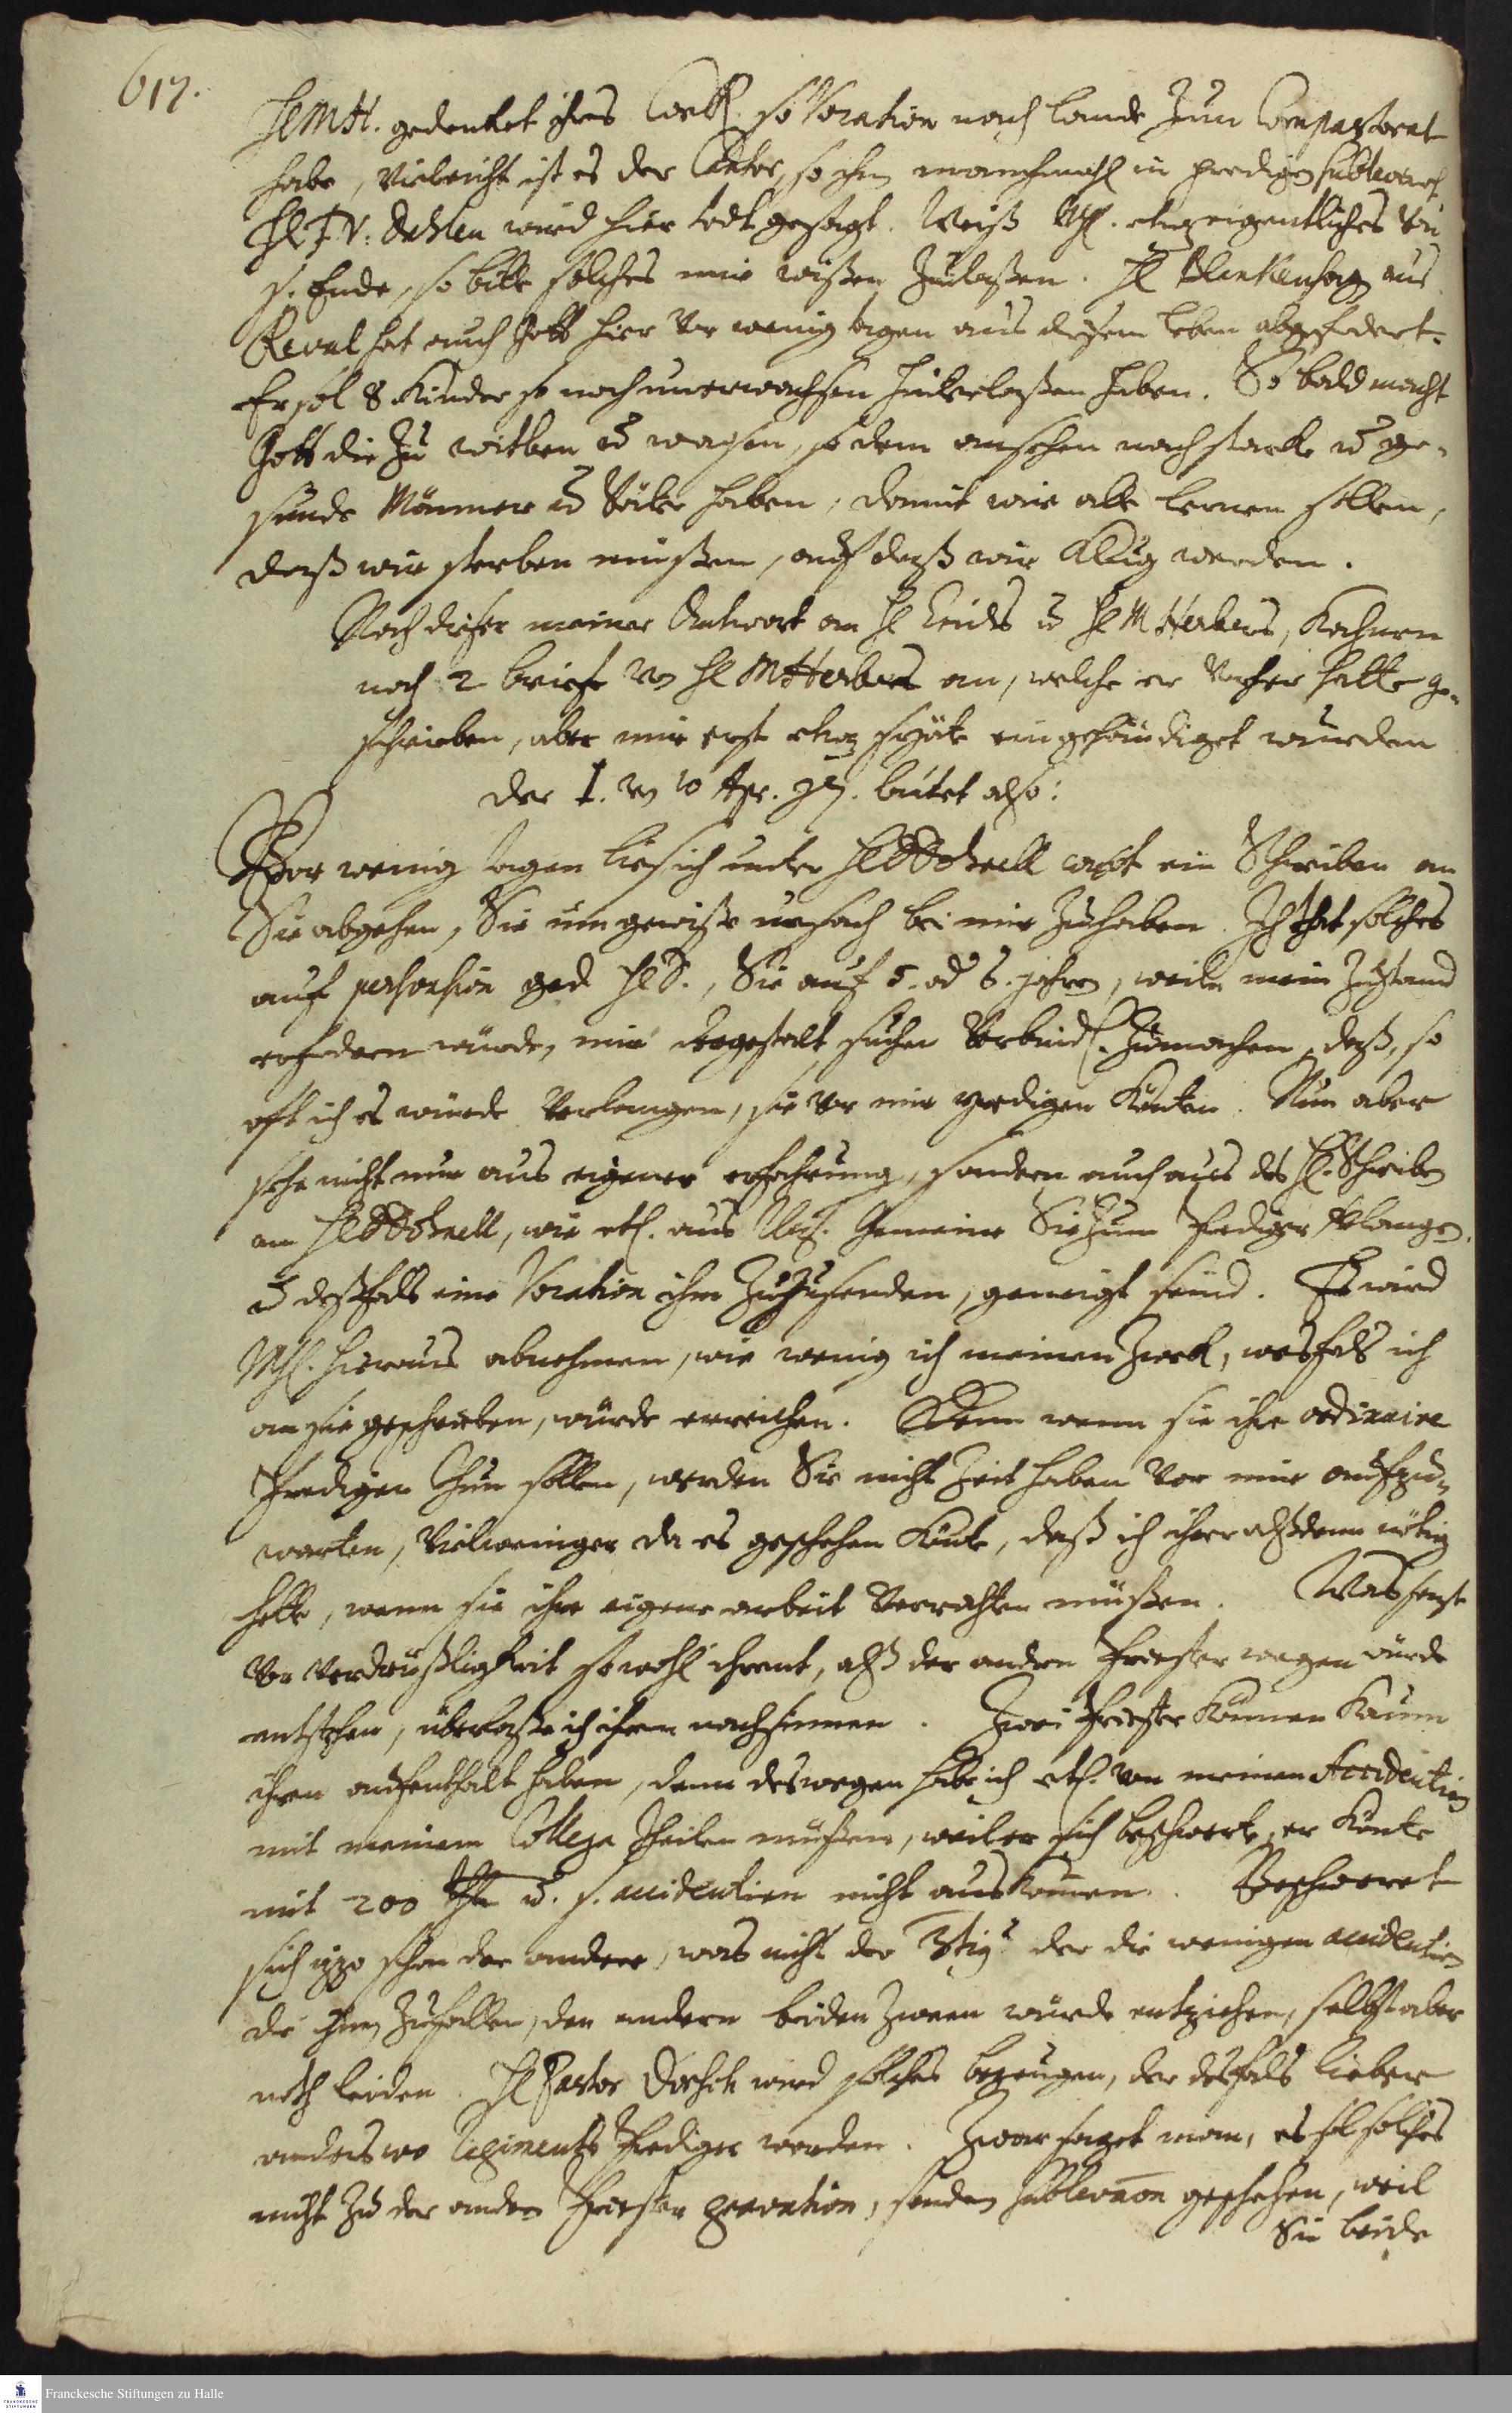 617.
Hl MH. gedenket ihres so Vocation nach Lande zum Compastorat
habe, vieleicht ist es der Cantor, so ihn manchmahl in predigen sublevirt
Hl F V: Dahlen wird hier todt gesagt. Weiß MHl. etwz eigentliches von
s. Ende, so bitte solches mir wißen zulaßen. Hl Blankenhag aus
Reval hat auch Gott hier vor wenig tagen aus diesem leben abgefodert.
Er sol 8 Kinder so noch unerwachsen hinterlaßen haben. So bald macht
Gott die zu witben u waysen, so dem ansehen nach starke u ge-
sunde Männer u Väter haben, damit wir alle lernen sollen,
daß wir sterben mußen, auf daß wir klug werden.
Nach dieser meiner Antwort an Hl u Hl M Herbers, kahmen
noch 2 briefe von Hl M Herbers an, welche er vorher hatte ge-
schrieben, aber mir erst etwz später eingehändiget wurden
der 1. von 10 Apr. lautet also:
Vor wenig tagen ließ ich unter Hl ein Schreiben an
Sie abgehen, Sie um gewiße ursach bei mir zuhaben. Ich that solches
auf persvasion ged Hl D., Sie auf 5. od 6. jahre, weiln mein Zustand
erfodern würde, mir dergestalt suchen verbindl. zumachen, daß, so
oft ich es würde verlangen, sie vor mir predigen könten. Nun aber
sehe nicht nur aus eigener erfahrung, sondern auch aus des Hl. Schreiben
an Hl, wie etl. aus Gemeine Sie zum Prediger verlangen,
u deßfals eine Vocation ihm zuzusenden, geneigt seind. Es wird
MHl. hieraus abnehmen, wie wenig ich meinen Zwek, weßfals ich
an sie geschrieben, würde erreichen. Denn wenn sie ihre ordinaire
Predigen thun sollen, werden Sie nicht Zeit haben vor mir aufzu-
warten, vielweniger da es geschehen könte, daß ich ihrer alßdenn nötig
hette, wenn sie ihre eigene arbeit verrichten müßen. Was sonst
vor verdrüßligkeit so wohl ihrent, alß der andern Priester wegen würde
entstehen, überlaße ich ihrem nachsinnen. Zwei Priester können kaum
ihren aufenthalt haben, denn deswegen habe ich etl. von meinen Accidentien
mit meinem Collega theilen müßen, weil er sich beschwerte, er könte
mit 200 Thlr u. s. accidentien nicht auskommen. Beschweret
sich izzo schon der andere, was nicht der 3tig? der die wenigen accidentien
die ihm zufallen, den andern beiden zween würde entziehen, selbst aber
noth leiden. Hl Pastor Dorsch wird solches bezeugen, der desfals lieber
anders wo Regiments Prediger worden. Zwar saget man, es sol solches
nicht zu der andern Priester gravation, sondern sublevation geschehen, weil
Sie beide
Franckesche Stiftungen zu Halle